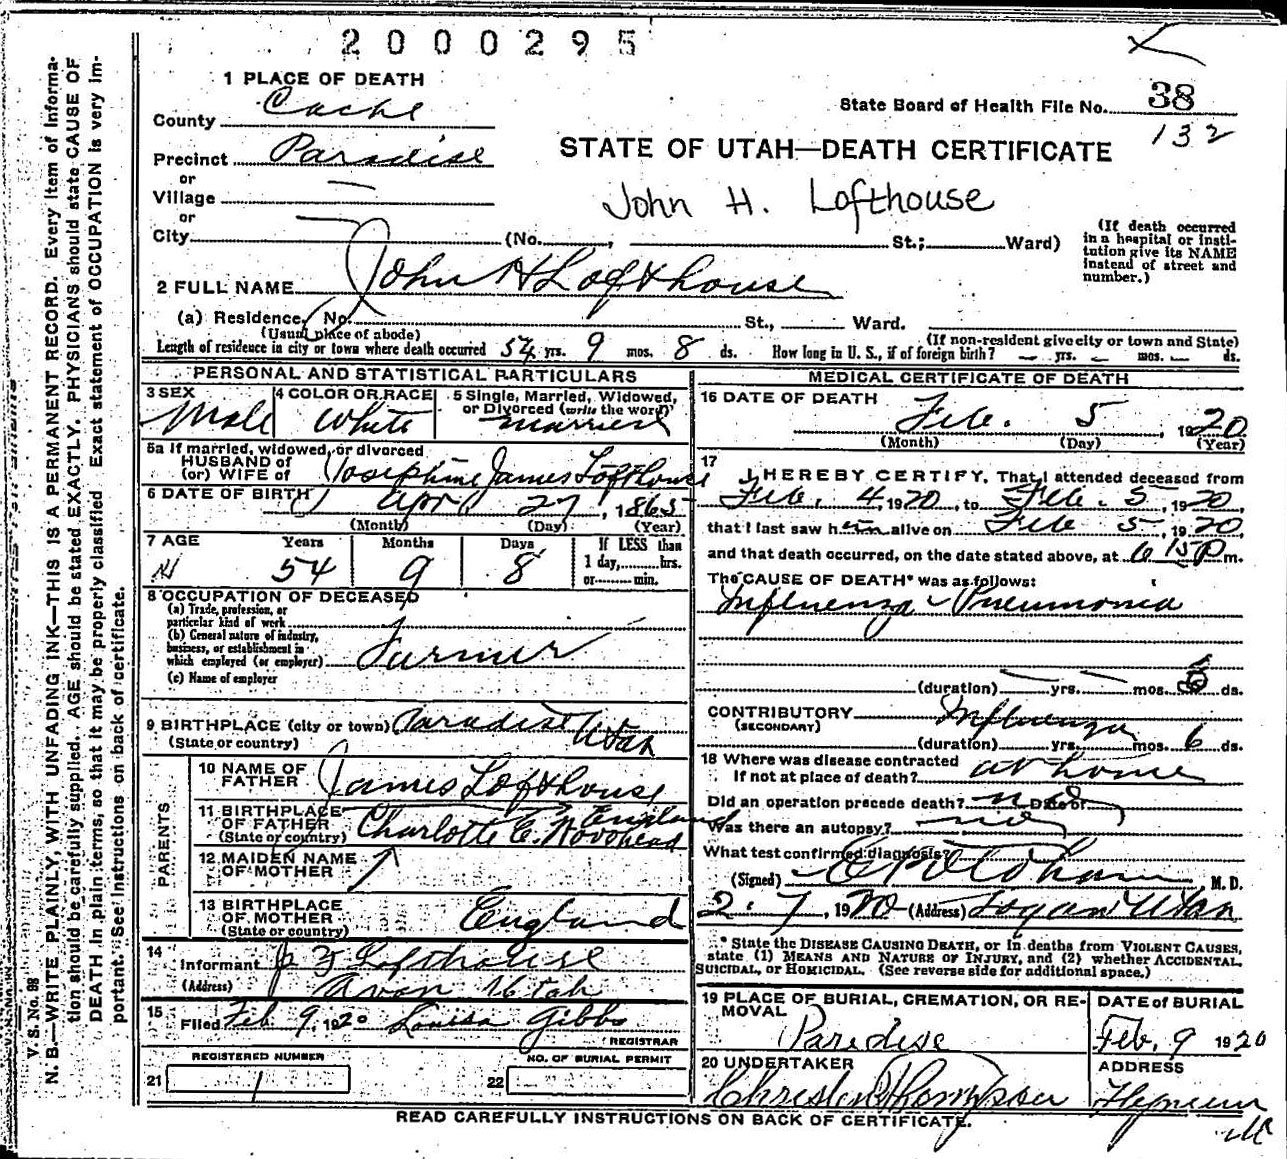 2000295
1 PLACE OF DEATH
County Cache
State Board of Health File No. 38
132
Precinct Paradise
STATE OF UTAH—DEATH CERTIFICATE
or
Village
John H. Lofthouse
or
City (No. , St.; Ward)
(If death occurred in a hospital or institution give its NAME instead of street and number.)
2 FULL NAME John H Lofthouse
(a) Residence. No. St., Ward.
(Usual place of abode) (If non-resident give city or town and State)
Length of residence in city or town where death occurred 54 yrs. 9 mos. 8 ds. How long in U. S., if of foreign birth? — yrs. — mos. — ds.
PERSONAL AND STATISTICAL PARTICULARS
3 SEX Male
4 COLOR OR RACE White
5 Single, Married, Widowed, or Divorced (write the word) Married
5a If married, widowed, or divorced
HUSBAND of
(or) WIFE of Josephine James Lofthouse
6 DATE OF BIRTH April 27, 1865
(Month) (Day) (Year)
7 AGE Years Months Days If LESS than
54 9 8 1 day, hrs.
or min.
8 OCCUPATION OF DECEASED
(a) Trade, profession, or
particular kind of work
(b) General nature of industry,
business, or establishment in
which employed (or employer) Farmer
(c) Name of employer
9 BIRTHPLACE (city or town) Paradise
(State or country) Utah
PARENTS
10 NAME OF
FATHER James Lofthouse
11 BIRTHPLACE
OF FATHER England
(State or country) Charlotte E.
12 MAIDEN NAME
OF MOTHER
13 BIRTHPLACE
OF MOTHER England
(State or country)
14 Informant J Z Lofthouse
(Address) Avon Utah
15 Filed Feb 9, 1920 Louisa Gibbs
REGISTRAR
REGISTERED NUMBER NO. OF BURIAL PERMIT
21 1 22
MEDICAL CERTIFICATE OF DEATH
16 DATE OF DEATH Feb. 5, 1920
(Month) (Day) (Year)
17 I HEREBY CERTIFY, That I attended deceased from
Feb. 4, 1920, to Feb. 5, 1920,
that I last saw him alive on Feb 5, 1920,
and that death occurred, on the date stated above, at 6 15 P m.
The CAUSE OF DEATH* was as follows:
Influenza - Pneumonia
(duration) yrs. mos. ds.
CONTRIBUTORY Influenza
(SECONDARY)
(duration) yrs. mos. 6 ds.
18 Where was disease contracted
If not at place of death? at home
Did an operation precede death? no Date of
Was there an autopsy? no
What test confirmed diagnosis?
(Signed) M. D.
2-7, 1920 (Address) Logan Utah
* State the DISEASE CAUSING DEATH, or in deaths from VIOLENT CAUSES,
state (1) MEANS AND NATURE OF INJURY, and (2) whether ACCIDENTAL,
SUICIDAL, or HOMICIDAL. (See reverse side for additional space.)
19 PLACE OF BURIAL, CREMATION, OR RE-
MOVAL Paradise
DATE of BURIAL
Feb. 9 1920
20 UNDERTAKER
ADDRESS
READ CAREFULLY INSTRUCTIONS ON BACK OF CERTIFICATE.
V. S. No. 88
N. B.—WRITE PLAINLY, WITH UNFADING INK—THIS IS A PERMANENT RECORD. Every Item of Informa-
tion should be carefully supplied. AGE should be stated EXACTLY. PHYSICIANS should state CAUSE OF
DEATH in plain terms, so that it may be properly classified. Exact statement of OCCUPATION is very im-
portant. See instructions on back of certificate.